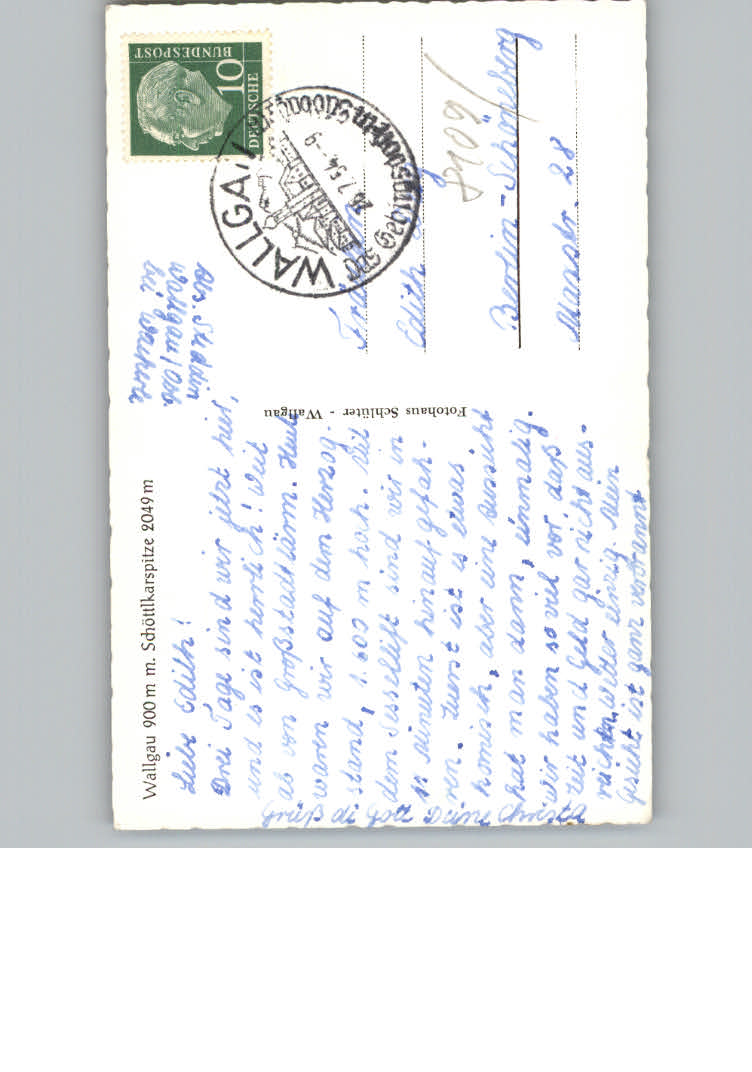 Wallgau 900 m m. Schöttlkarspitze 2049 m
Liebe Edith!
Drei Tage sind wir jetzt hier,
und es ist herrlich! Weit
ab von Großstadtlärm. Heut
waren wir auf dem Herzog-
stand, 1.600 m hoch. Mit
dem Sessellift sind wir in
11 Minuten hinaufgefah-
ren. Zuerst ist es etwas
komisch, aber eine Aussicht
hat man dann, einmalig.
Wir haben so viel vor, daß
Zeit und Geld gar nicht aus-
reichen. Wetter einzig. Mein
Gesicht ist ganz verbrannt
Grüß di Gott Deine Christa
Abs.
Wallgau / Obb.
bei
Fotohaus Schlüter - Wallgau
DEUTSCHE
BUNDESPOST
10
WALLGAU
das Gebirgsdorf in Südbayern
26.7.54.-9
Fräulein
Edith
8109/
Berlin-Schöneberg
Maastr. 28